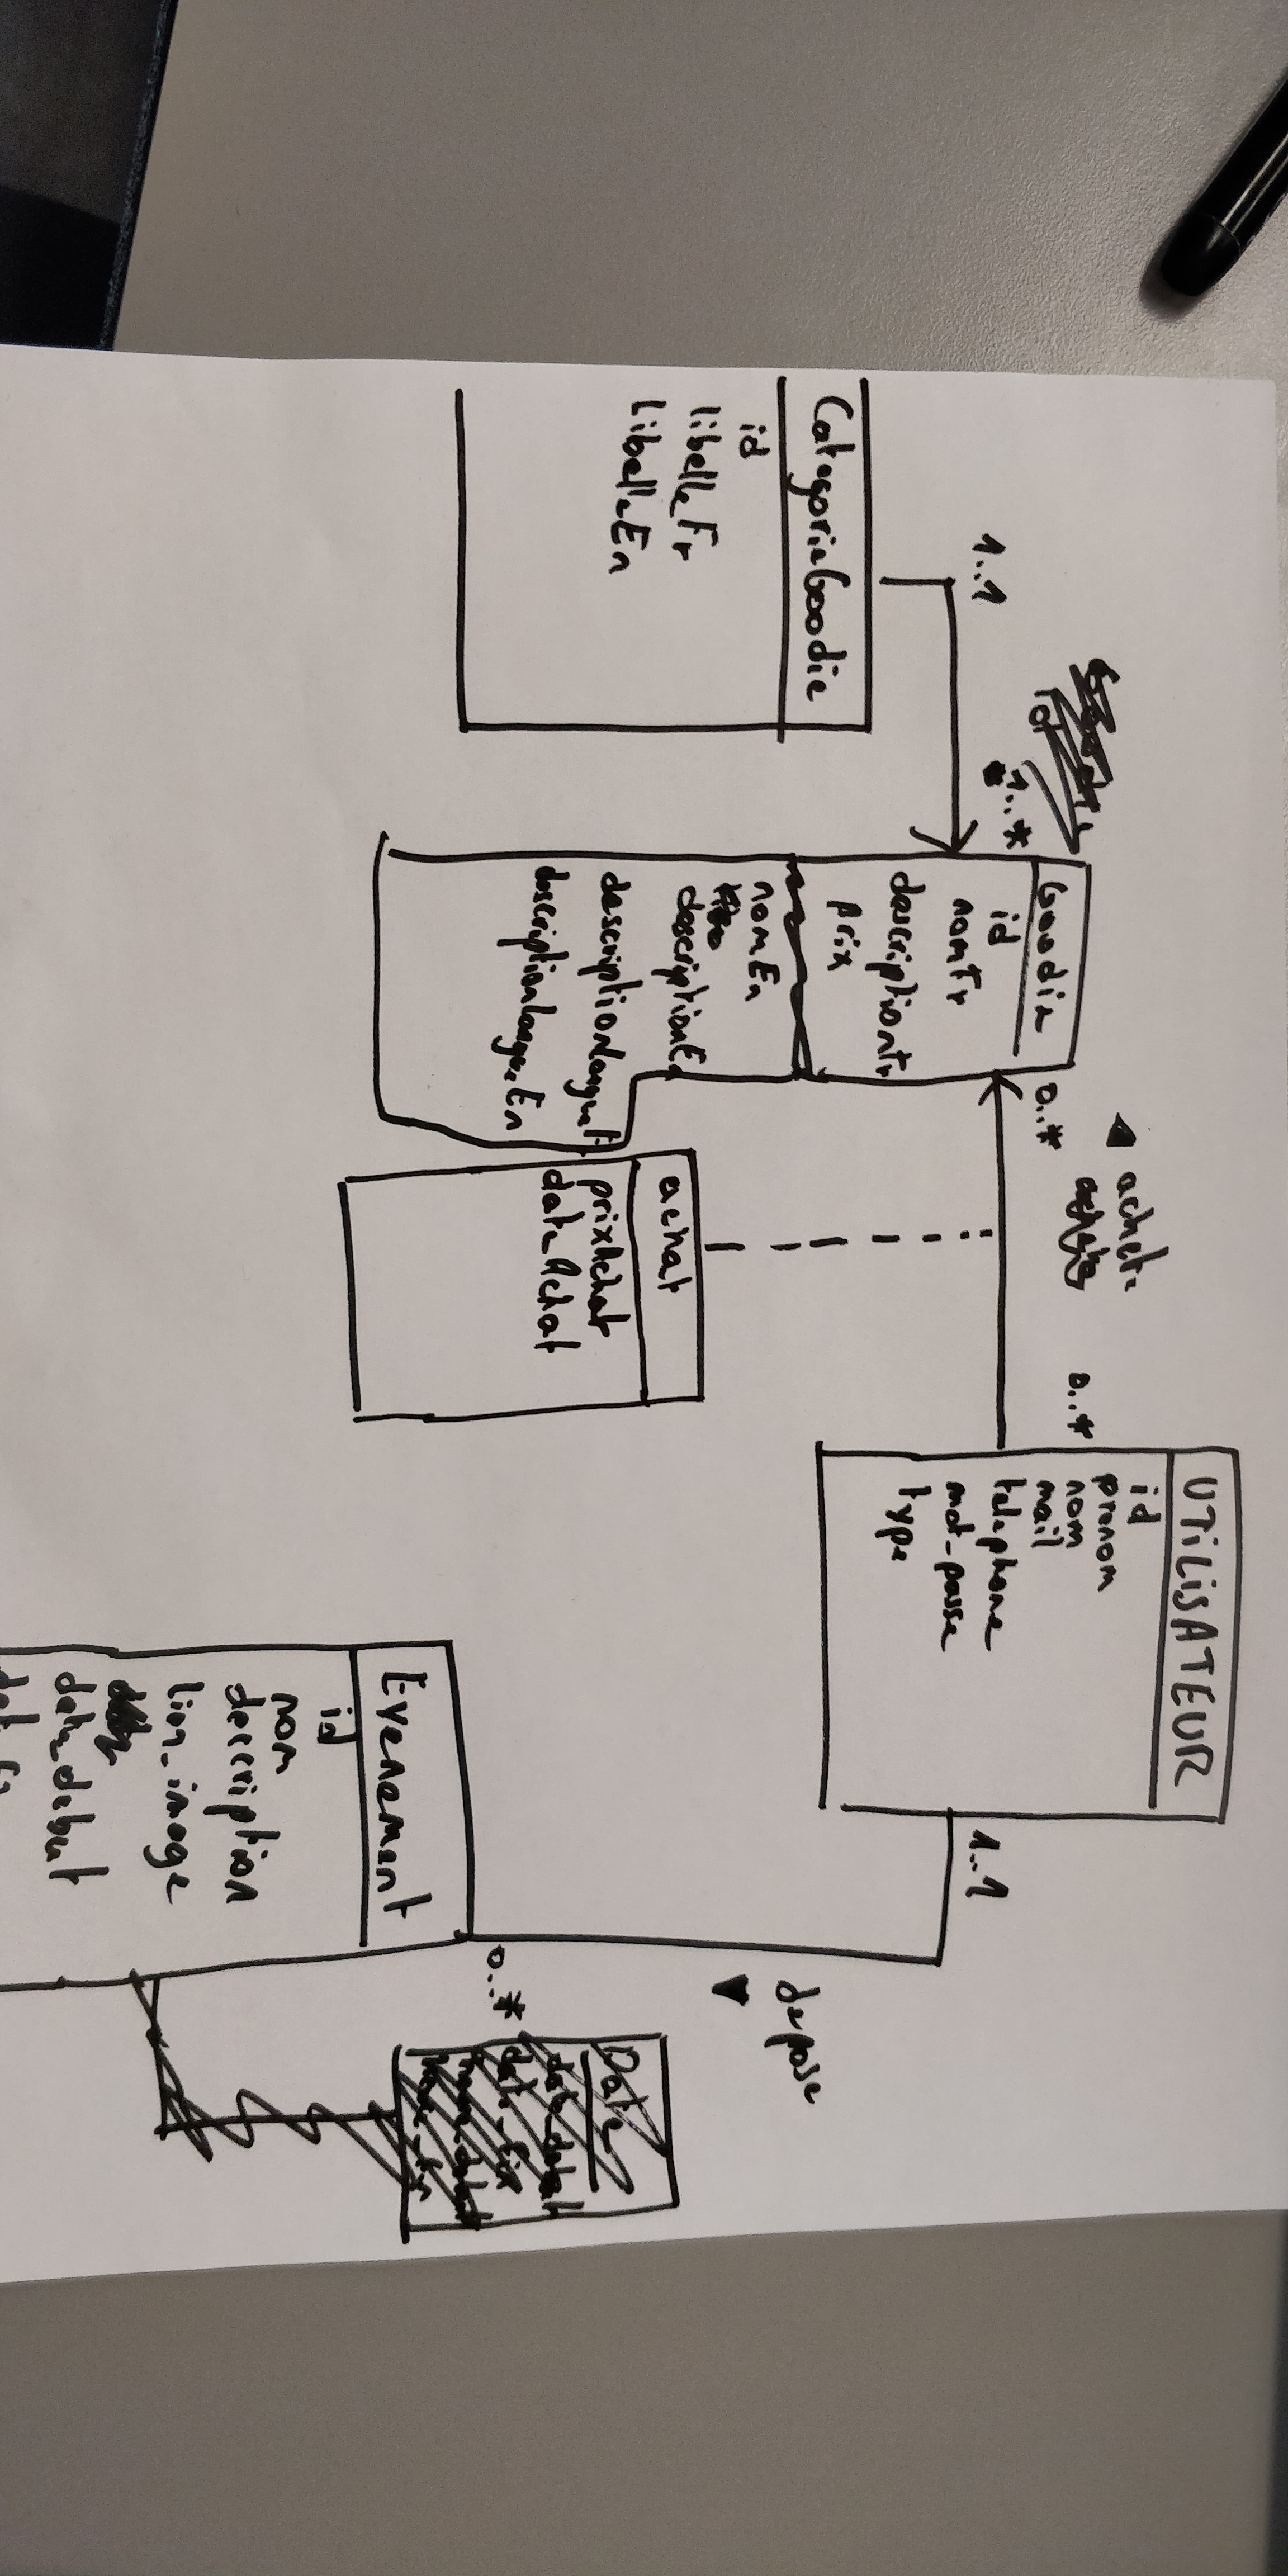 CategorieGoodie
id
libelleFr
libelleEn
1..1
1..*
Goodie
id
nomFr
descriptionFr
prix
nomEn
descriptionE
descriptionLongueF
descriptionLongueEn
0..*
achete
0..*
achat
prixAchat
date_Achat
UTiLiSATEUR
id
prenom
nom
mail
telephone
mot_passe
type
1..1
depose
0..*
Evenement
id
nom
description
lien_image
date_debut
Date
date_debut
date_fin